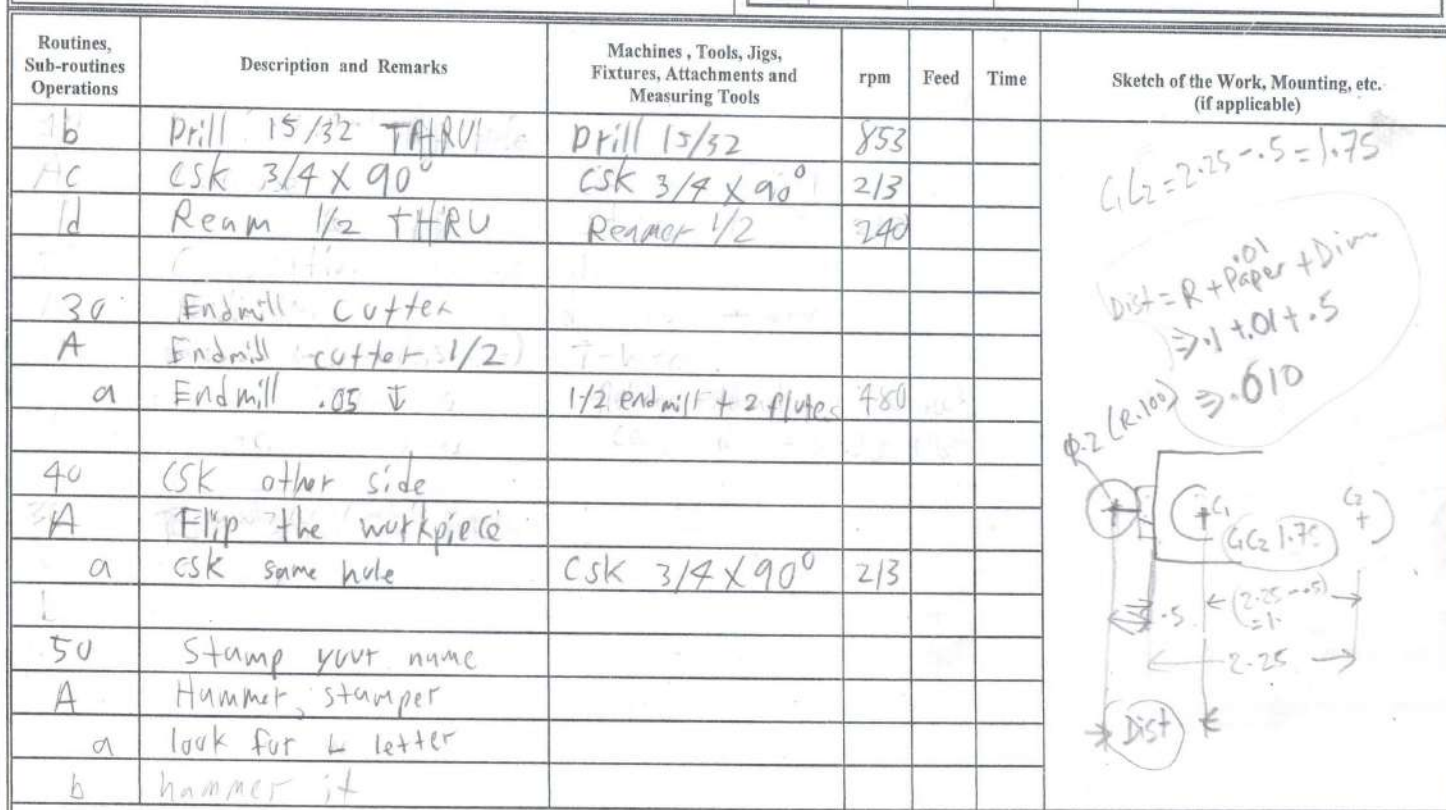 Routines, Sub-routines Operations | Description and Remarks | Machines , Tools, Jigs, Fixtures, Attachments and Measuring Tools | rpm | Feed | Time | Sketch of the Work, Mounting, etc. (if applicable)
b Drill 15/32 THRU Drill 15/32 853
c CSK 3/4 X 90° CSK 3/4 X 90° 213
d Ream 1/2 THRU Reamer 1/2 240
30 Endmill cutter
A Endmill cutter 1/2
a Endmill .05 ↧ 1/2 endmill + 2 flutes 480
40 CSK other side
A Flip the workpiece
a CSK same hole CSK 3/4 X 90° 213
50 Stamp your name
A Hammer, stamper
a look for L letter
b hammer it
C1C2 = 2.25 - .5 = 1.75
.01
Dist = R + Paper + Dim
⇒ .1 + .01 + .5
⇒ .610
Φ.2 (R.100)
C1 C2
C1C2 1.75
.5 (2.25 - .5)
= 1.
2.25
Dist